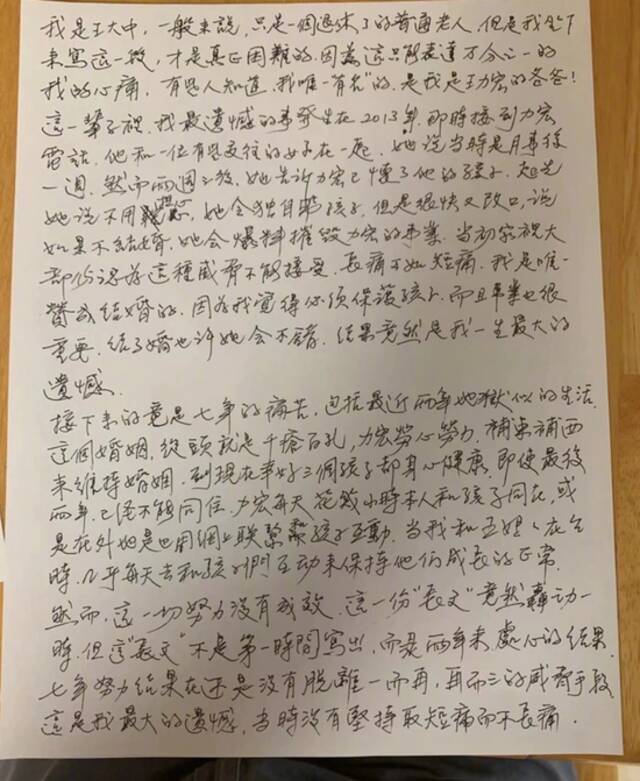 我是王大中，一般來說，只是一個退休了的普通老人，但是我坐下
來寫這一段，才是真正困難的，因為這只能表達万分之一的
我的心痛，有些人知道，我唯一"有名"的，是我是王力宏的爸爸！
這一輩子說，我最遺憾的事發生在2013年，那時接到力宏
電話，他和一位有些交往的女子在一起，她說當時是月事後
一週，然而兩週之後，她告訴力宏已懷了他的孩子，起先
她說不用擔心，她会獨自帶孩子，但是很快又改口，說
如果不結婚，她会爆料摧毀力宏的事業，當初家視大
部份認為這種威脅不能接受，長痛不如短痛，我是唯一
贊成結婚的，因為我覺得必須保護孩子，而且事業也很
重要，結了婚也許她会不錯，結果竟然是我一生最大的
遺憾．
接下來的竟是七年的痛苦，包括最近兩年地獄似的生活，
這個婚姻，從頭就是千瘡百孔，力宏勞心勞力，補東補西
來維持婚姻，到現在幸好三個孩子都身心健康，即使最後
兩年，已經不能同住，力宏每天花數小時本人和孩子同在，或
是在外地也用網上聯繫幫孩子互動，當我和王媽ㄑ在台
時，几乎每天去和孩子們互动來保持他們成長的正常．
然而，這一切努力沒有成效，這一份"長文"竟然轟动一
時，但這"長文"不是第一時間寫出，而是兩年來處心的結果，
七年努力結果在還是沒有脫離一而再，再而三的威脅手段
這是我最大的遺憾，當時沒有堅持取短痛而不長痛．